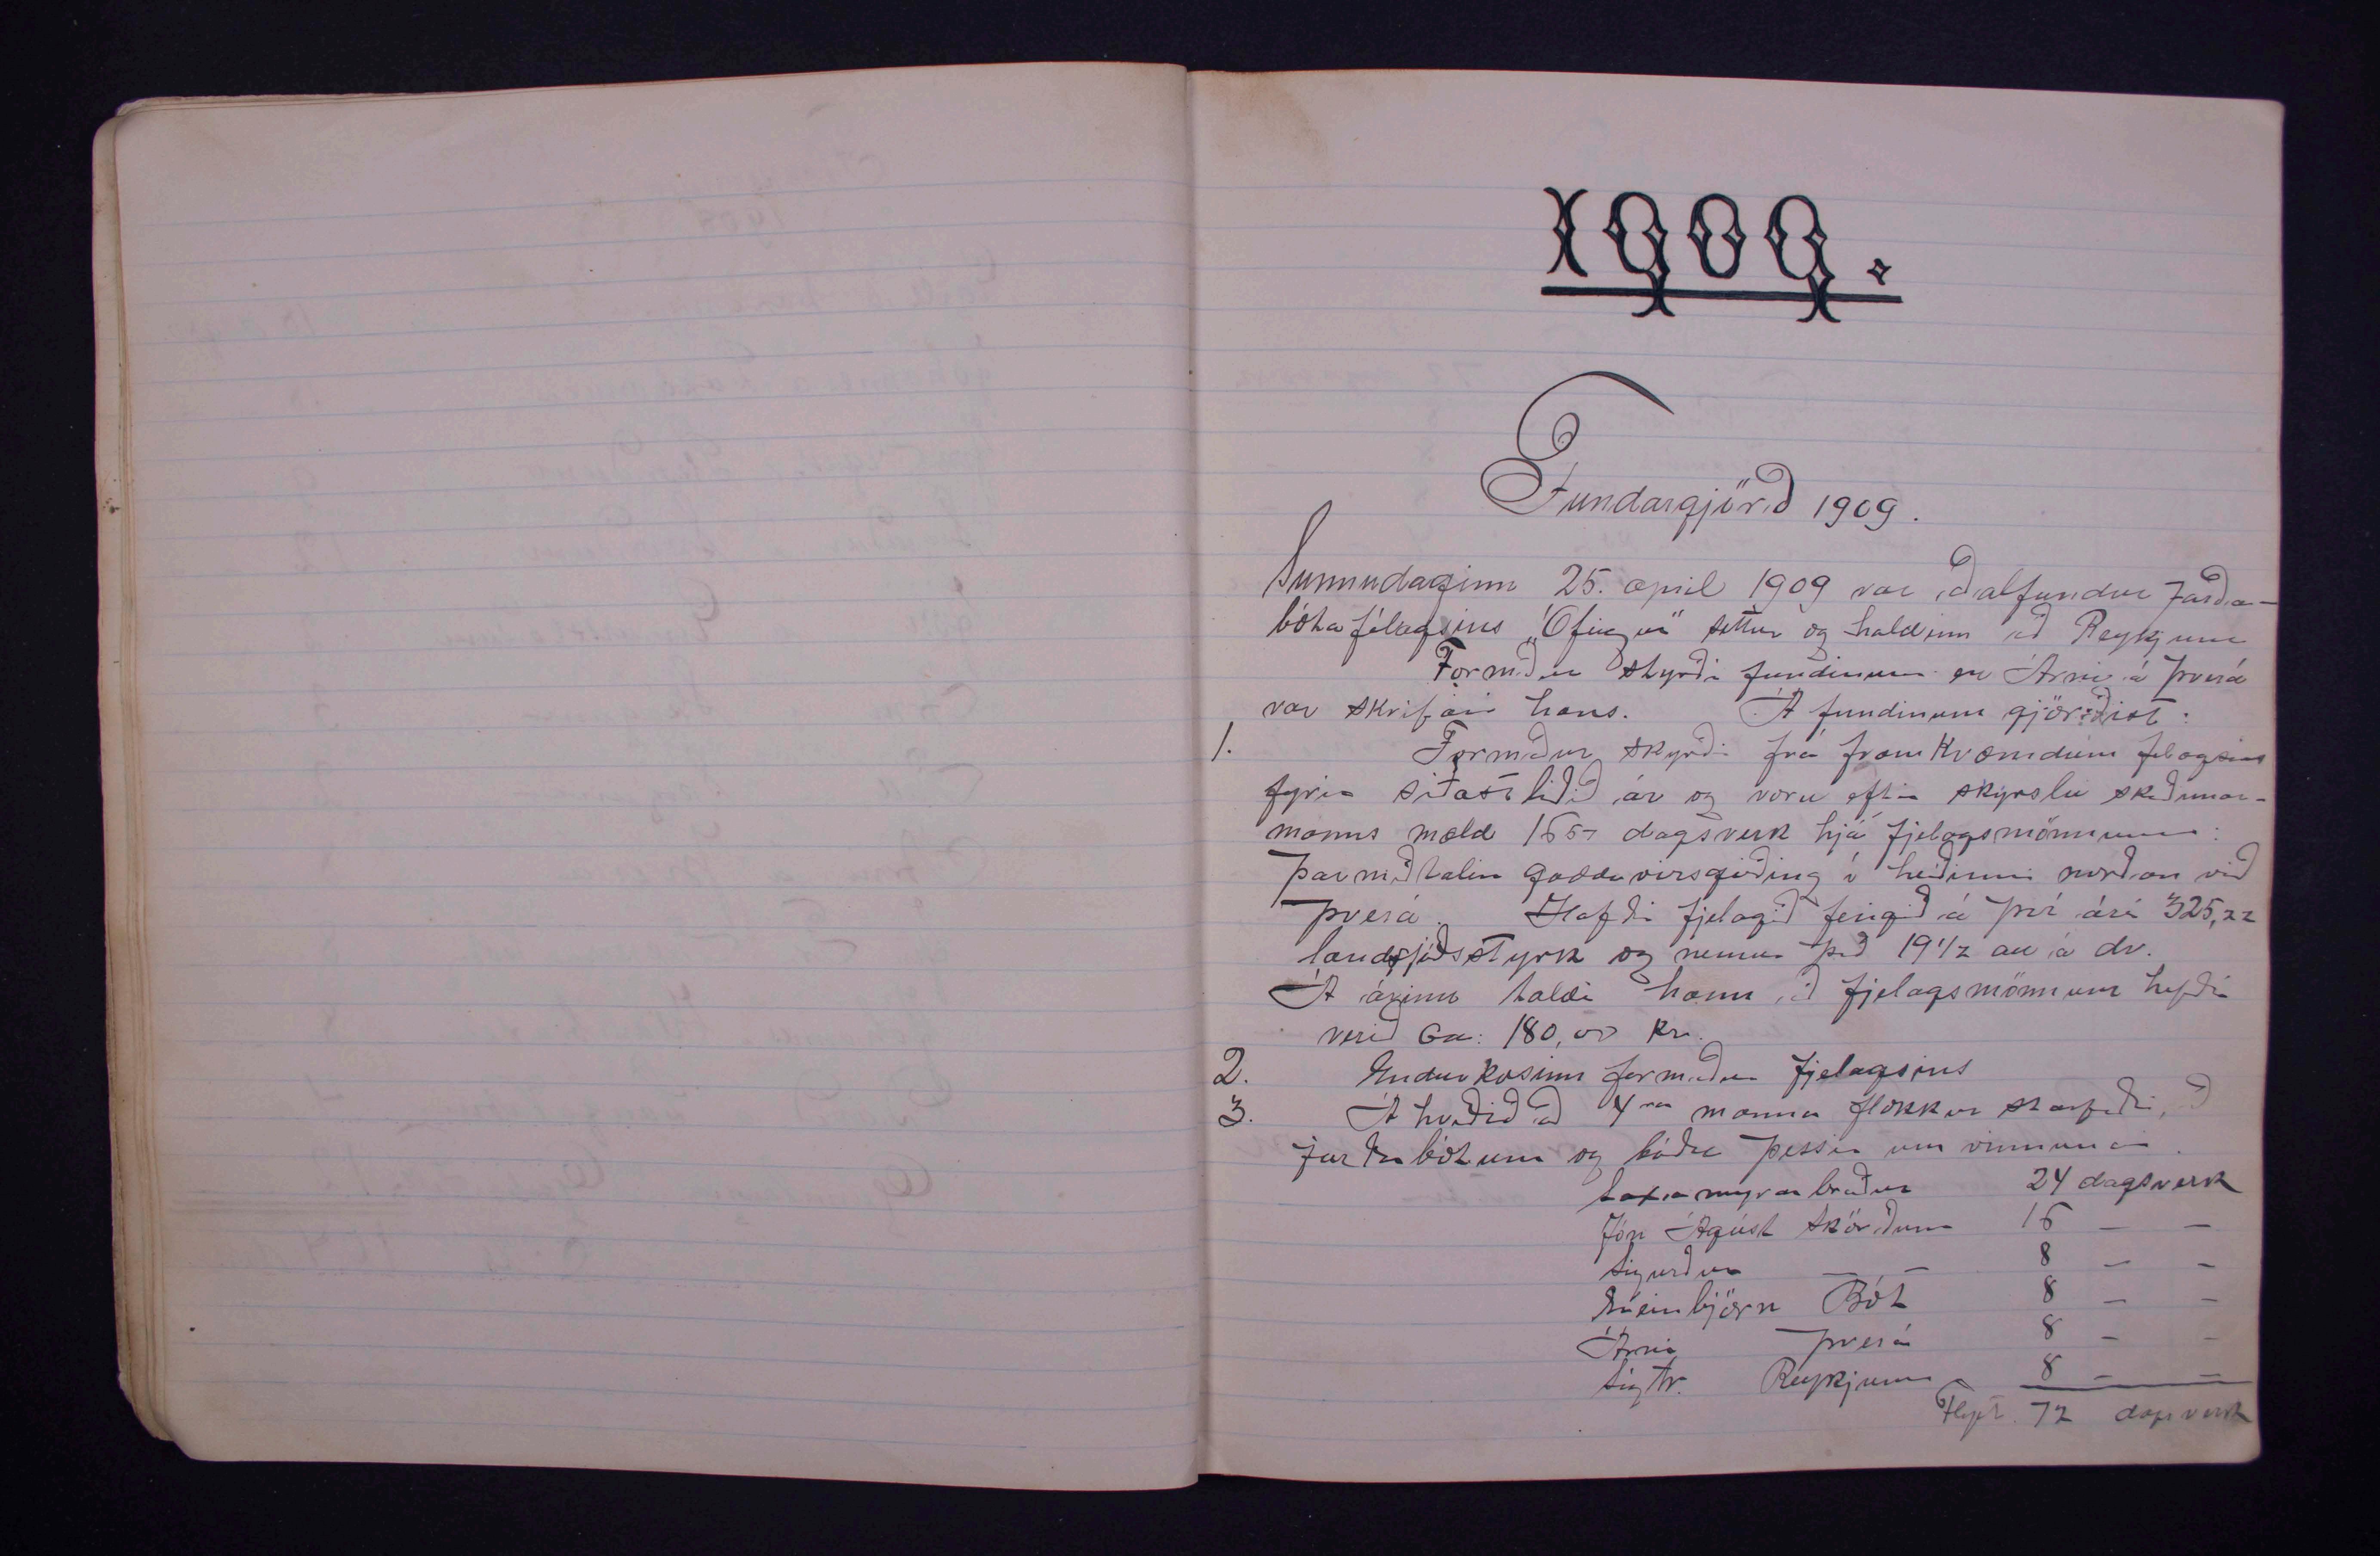 1909.
Fundargjörð 1909.
Sunnudaginn 25. apríl 1909 var aðalfundur Jarða-
bótafélagsins „Ófeigur" settur og haldinn að Reykjum
Formaður styrði fundinum en Árni á Þverá
var skrifari hans. Á fundinum gjörðist:
1. Formaður skyrði frá framkvæmdum felagsins
fyrir síðastliðið ár og voru eftir skyrslu skoðunar-
manns mæld 1657 dagsverk hjá fjelagsmönnum:
Þarmeðtalin gaddavirsgirðing í heiðinni norðan við
Þverá. Hafði fjelagið fengið á því ári 325,22
landsjóðsstyrk og nemur það 19 1/2 au á dv.
Á árinu taldi hann að fjelagsmönnum hefði
verið Ca: 180,00 kr.
2. Endurkosinn formaður fjelagsins
3. Ákveðið að 4ra manna flokkur starfaði að
jarðabótum og báðu þessir um vinnuna
Laxamyrarbræður 24 dagsverk
Jón Ágúst Skörðum 16 — —
Sigurður — — 8 — —
Sveinbjörn Bót 8 — —
Árni Þverá 8 — —
Sigtr. Reykjum 8 — —
Flyt. 72 dagsverk